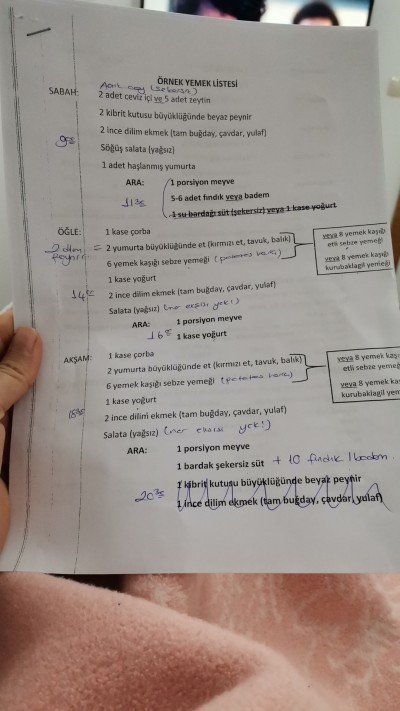 ÖRNEK YEMEK LİSTESİ
Açık çay (şekersiz)
SABAH: 2 adet ceviz içi ve 5 adet zeytin
2 kibrit kutusu büyüklüğünde beyaz peynir
2 ince dilim ekmek (tam buğday, çavdar, yulaf)
Söğüş salata (yağsız)
1 adet haşlanmış yumurta
ARA: 1 porsiyon meyve
5-6 adet fındık veya badem
1 su bardağı süt (şekersiz) veya 1 kase yoğurt
ÖĞLE: 1 kase çorba
2 dilim peynir = 2 yumurta büyüklüğünde et (kırmızı et, tavuk, balık)
6 yemek kaşığı sebze yemeği (patates hariç)
veya 8 yemek kaşığı
etli sebze yemeği
veya 8 yemek kaşığı
kurubaklagil yemeği
1 kase yoğurt
2 ince dilim ekmek (tam buğday, çavdar, yulaf)
Salata (yağsız) (nar ekşisi yok!)
ARA: 1 porsiyon meyve
1 kase yoğurt
AKŞAM: 1 kase çorba
2 yumurta büyüklüğünde et (kırmızı et, tavuk, balık)
6 yemek kaşığı sebze yemeği (patates hariç)
veya 8 yemek
etli sebze
veya 8
kurubaklagil
1 kase yoğurt
2 ince dilim ekmek (tam buğday, çavdar, yulaf)
Salata (yağsız) (nar ekşisi yok!)
ARA: 1 porsiyon meyve
1 bardak şekersiz süt + 10 fındık / badem
1 kibrit kutusu büyüklüğünde beyaz peynir
1 ince dilim ekmek (tam buğday, çavdar, yulaf)